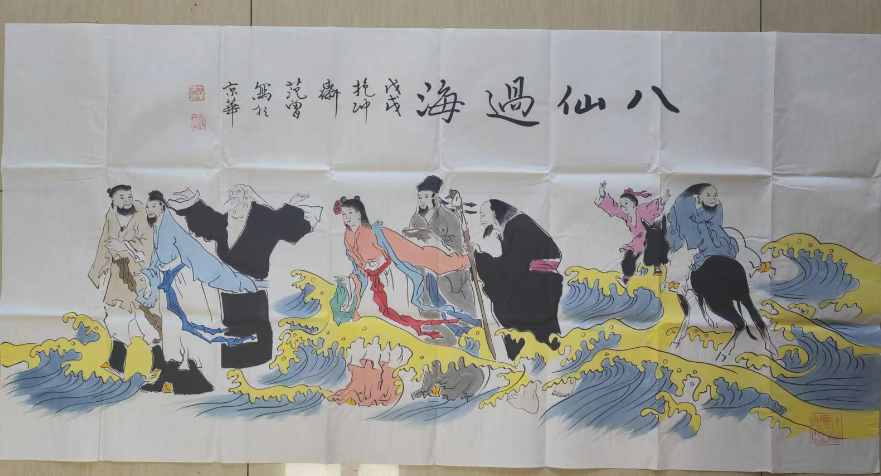 八仙過海
戊戌
乾坤
齋
范曾
寫於
京華